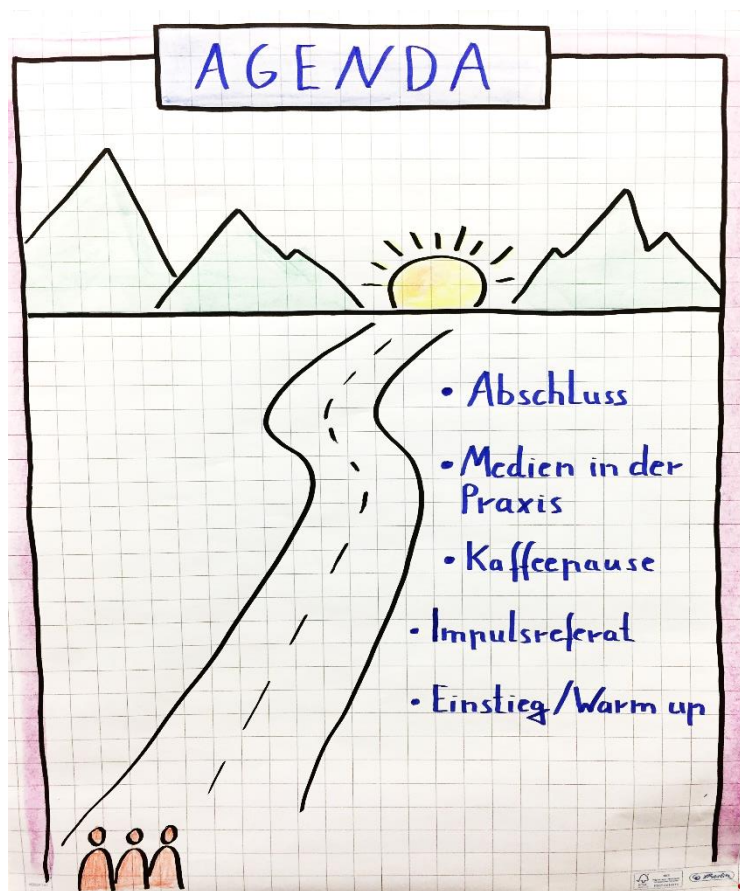 AGENDA
• Abschluss
• Medien in der
Praxis
• Kaffeepause
• Impulsreferat
• Einstieg/Warm up